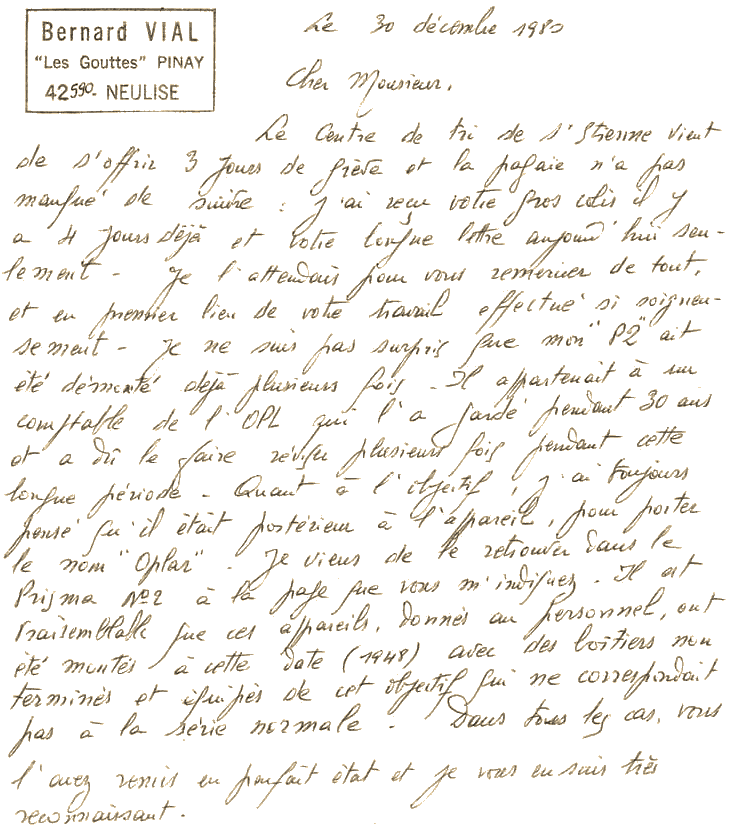 Bernard VIAL
"Les Gouttes" PINAY
42590- NEULISE
Le 30 décembre 1980
Cher Monsieur,
Le Centre de tri de St Etienne vient
de s'offrir 3 jours de grève et la pagaie n'a pas
manqué de suivre : j'ai reçu votre gros colis il y
a 4 jours déjà et votre longue lettre aujourd'hui seu-
lement - Je l'attendais pour vous remercier de tout,
et en premier lieu de votre travail effectué si soigneu-
sement - Je ne suis pas surpris que mon "P2" ait
été démonté déjà plusieurs fois - Il appartenait à un
comptable de l'OPL qui l'a gardé pendant 30 ans
et a dû le faire réviser plusieurs fois pendant cette
longue période - Quant à l'objectif, j'ai toujours
pensé qu'il était postérieur à l'appareil, pour porter
le nom "Oplar" - Je viens de le retrouver dans le
Prisma N°2 à la page que vous m'indiquez. Il est
vraisemblable que ces appareils, donnés au personnel, ont
été montés à cette date (1948) avec des boîtiers non
terminés et équipés de cet objectif qui ne correspondait
pas à la série normale - Dans tous les cas, vous
l'avez remis en parfait état et je vous en suis très
reconnaissant.